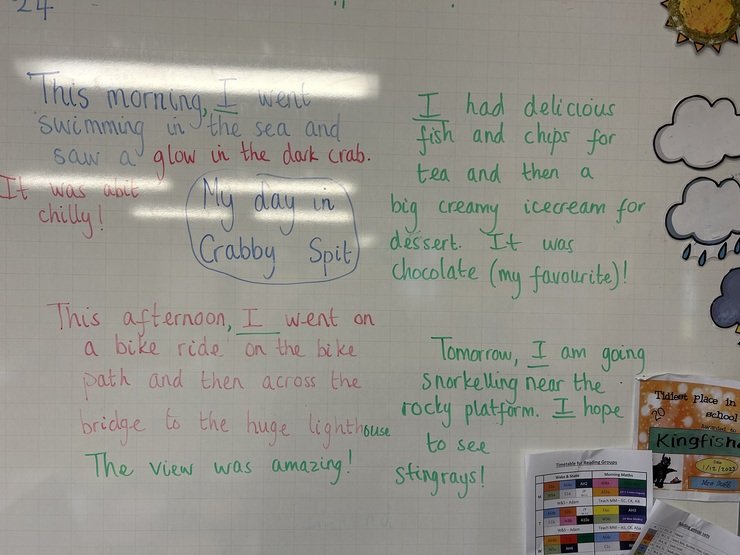 24
This morning, I went
swimming in the sea and
saw a glow in the dark crab.
It was abit
chilly!
My day in
Crabby Spit
This afternoon, I went on
a bike ride on the bike
path and then across the
bridge to the huge lighthouse
The view was amazing!
I had delicious
fish and chips for
tea and then a
big creamy icecream for
dessert. It was
chocolate (my favourite)!
Tomorrow, I am going
snorkelling near the
rocky platform. I hope
to see
stingrays!
Tidiest Place in
school
Awarded to
Kingfish
1/12/2023
Timetable for Reading Groups
Wake & Shake Morning Maths